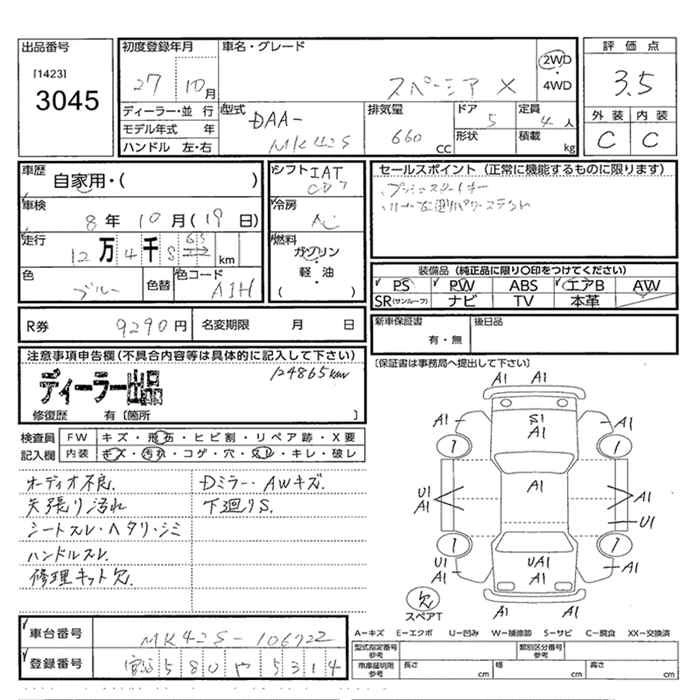 出品番号
[1423]
3045
初度登録年月
27 10月
車名・グレード
スペーシア X
2WD
・
4WD
評価点
3.5
外装 内装
C C
ディーラー・並行
モデル年式 年
ハンドル 左・右
型式
DAA-
MK42S
排気量
660 CC
ドア
5
形状
定員
4 人
積載
kg
車歴
自家用・( )
車検
8年 10月(19日)
走行
12万 4千 8 km
色
ブルー
色替
色コード
シフト IAT
冷房
AC
燃料
ガソリン
・
軽・油
( )
セールスポイント (正常に機能するものに限ります)
・プッシュスタートキー
装備品 (純正品に限り○印をつけてください)
PS PW ABS エアB AW
SR(サンルーフ) ナビ TV 本革
R券 9290円
名変期限 月 日
新車保証書
有・無
後日品
[保証書は事務局へ提出して下さい]
注意事項申告欄(不具合内容等は具体的に記入して下さい)
124865km
ディーラー出品
修復歴 有 [箇所 ]
検査員
記入欄
FW キズ・飛石・ヒビ割・リペア跡・X要
内装 キズ・汚れ・コゲ・穴・スレ・キレ・破レ
オーディオ不良.
天張り汚れ
シートスレ・ヘタリ・シミ
ハンドルスレ.
修理キット欠.
Dミラー・AWキズ.
下廻りS.
A1 A1
A1 S1 A1
A1
1 1
A1
U1
A1
A1
U1
1 1
U1
A1
UA1
A1
A1
欠
スペアT
A1 A1
A-キズ E-エクボ U-凹み W-補修跡 S-サビ C-腐食 XX-交換済
車台番号
MK42S-106722
登録番号
580 や 5314
型式指定番号
参考
類別区分番号
参考
車庫証明用
参考
長さ cm
幅 cm
高さ cm